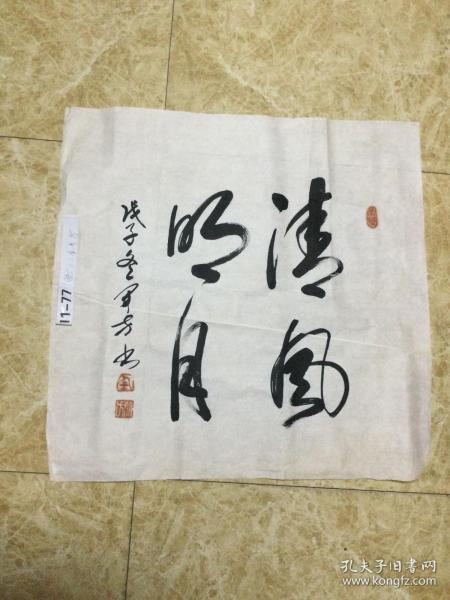 清风
明月
戊子冬军芳书
11-77
孔夫子旧书网
www.kongfz.com